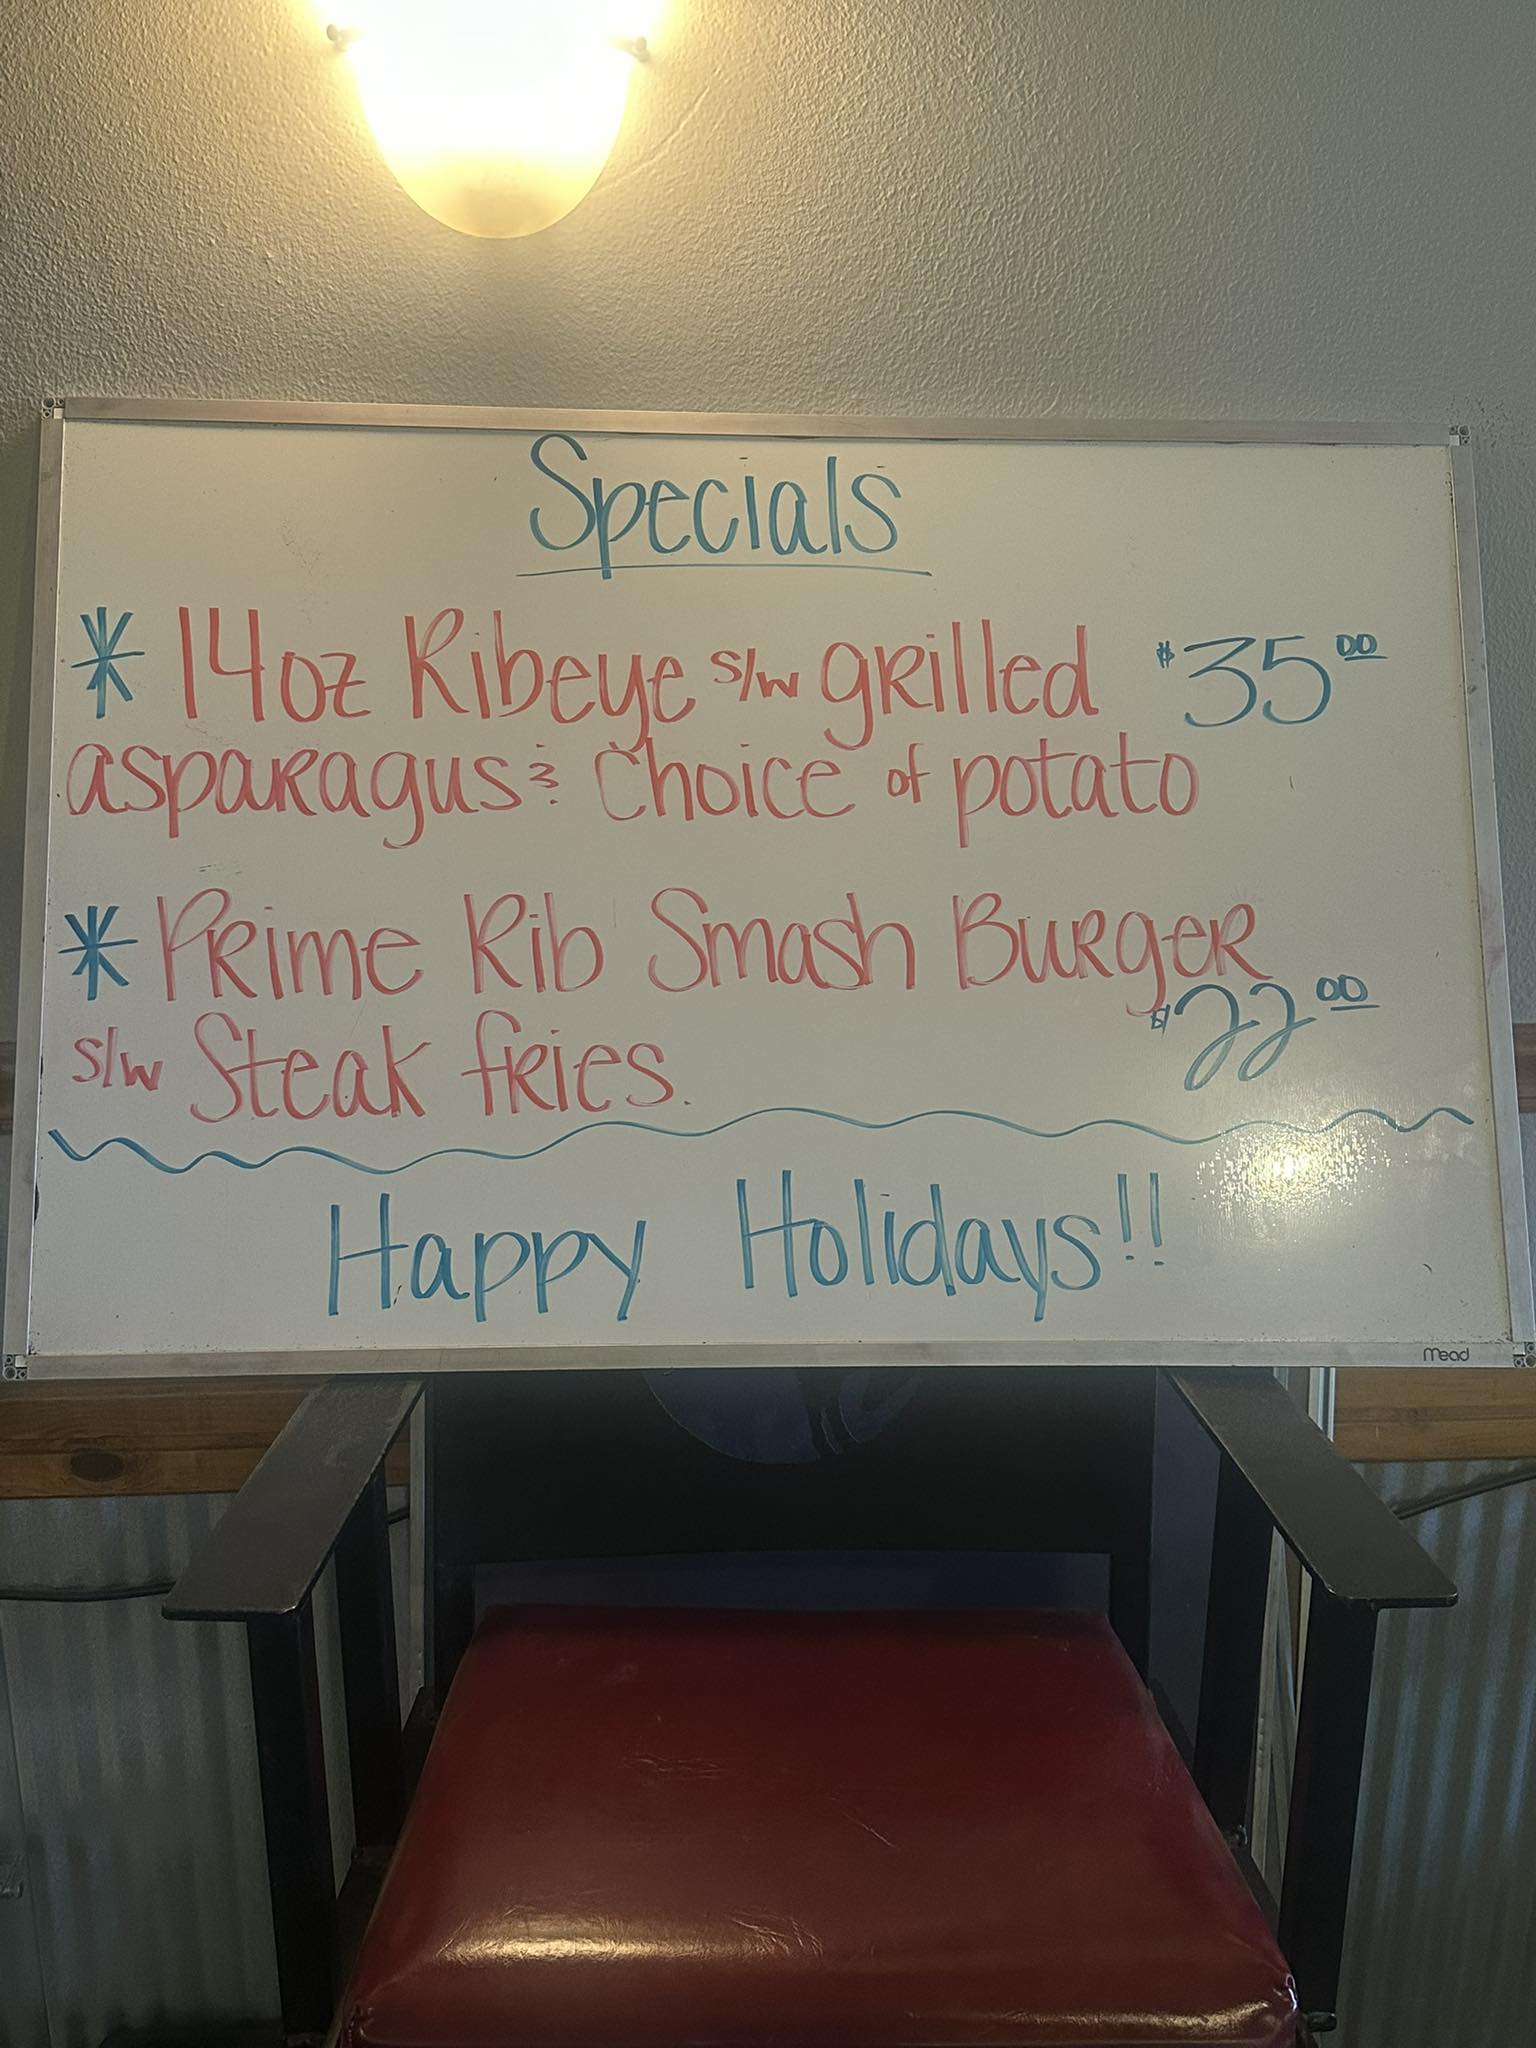 Specials
* 14oz Ribeye s/w grilled $35.00
asparagus & Choice of potato
* Prime Rib Smash Burger
s/w Steak fries. $22.00
Happy Holidays!!
Mead